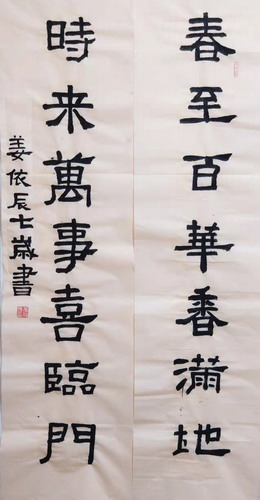 春至百華香滿地
時来萬事喜臨門
姜依辰七歲書